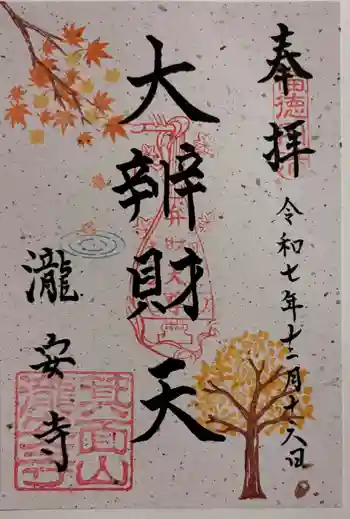 奉拝
令和七年十二月十六日
大辨財天
瀧安寺
箕面山
瀧安寺